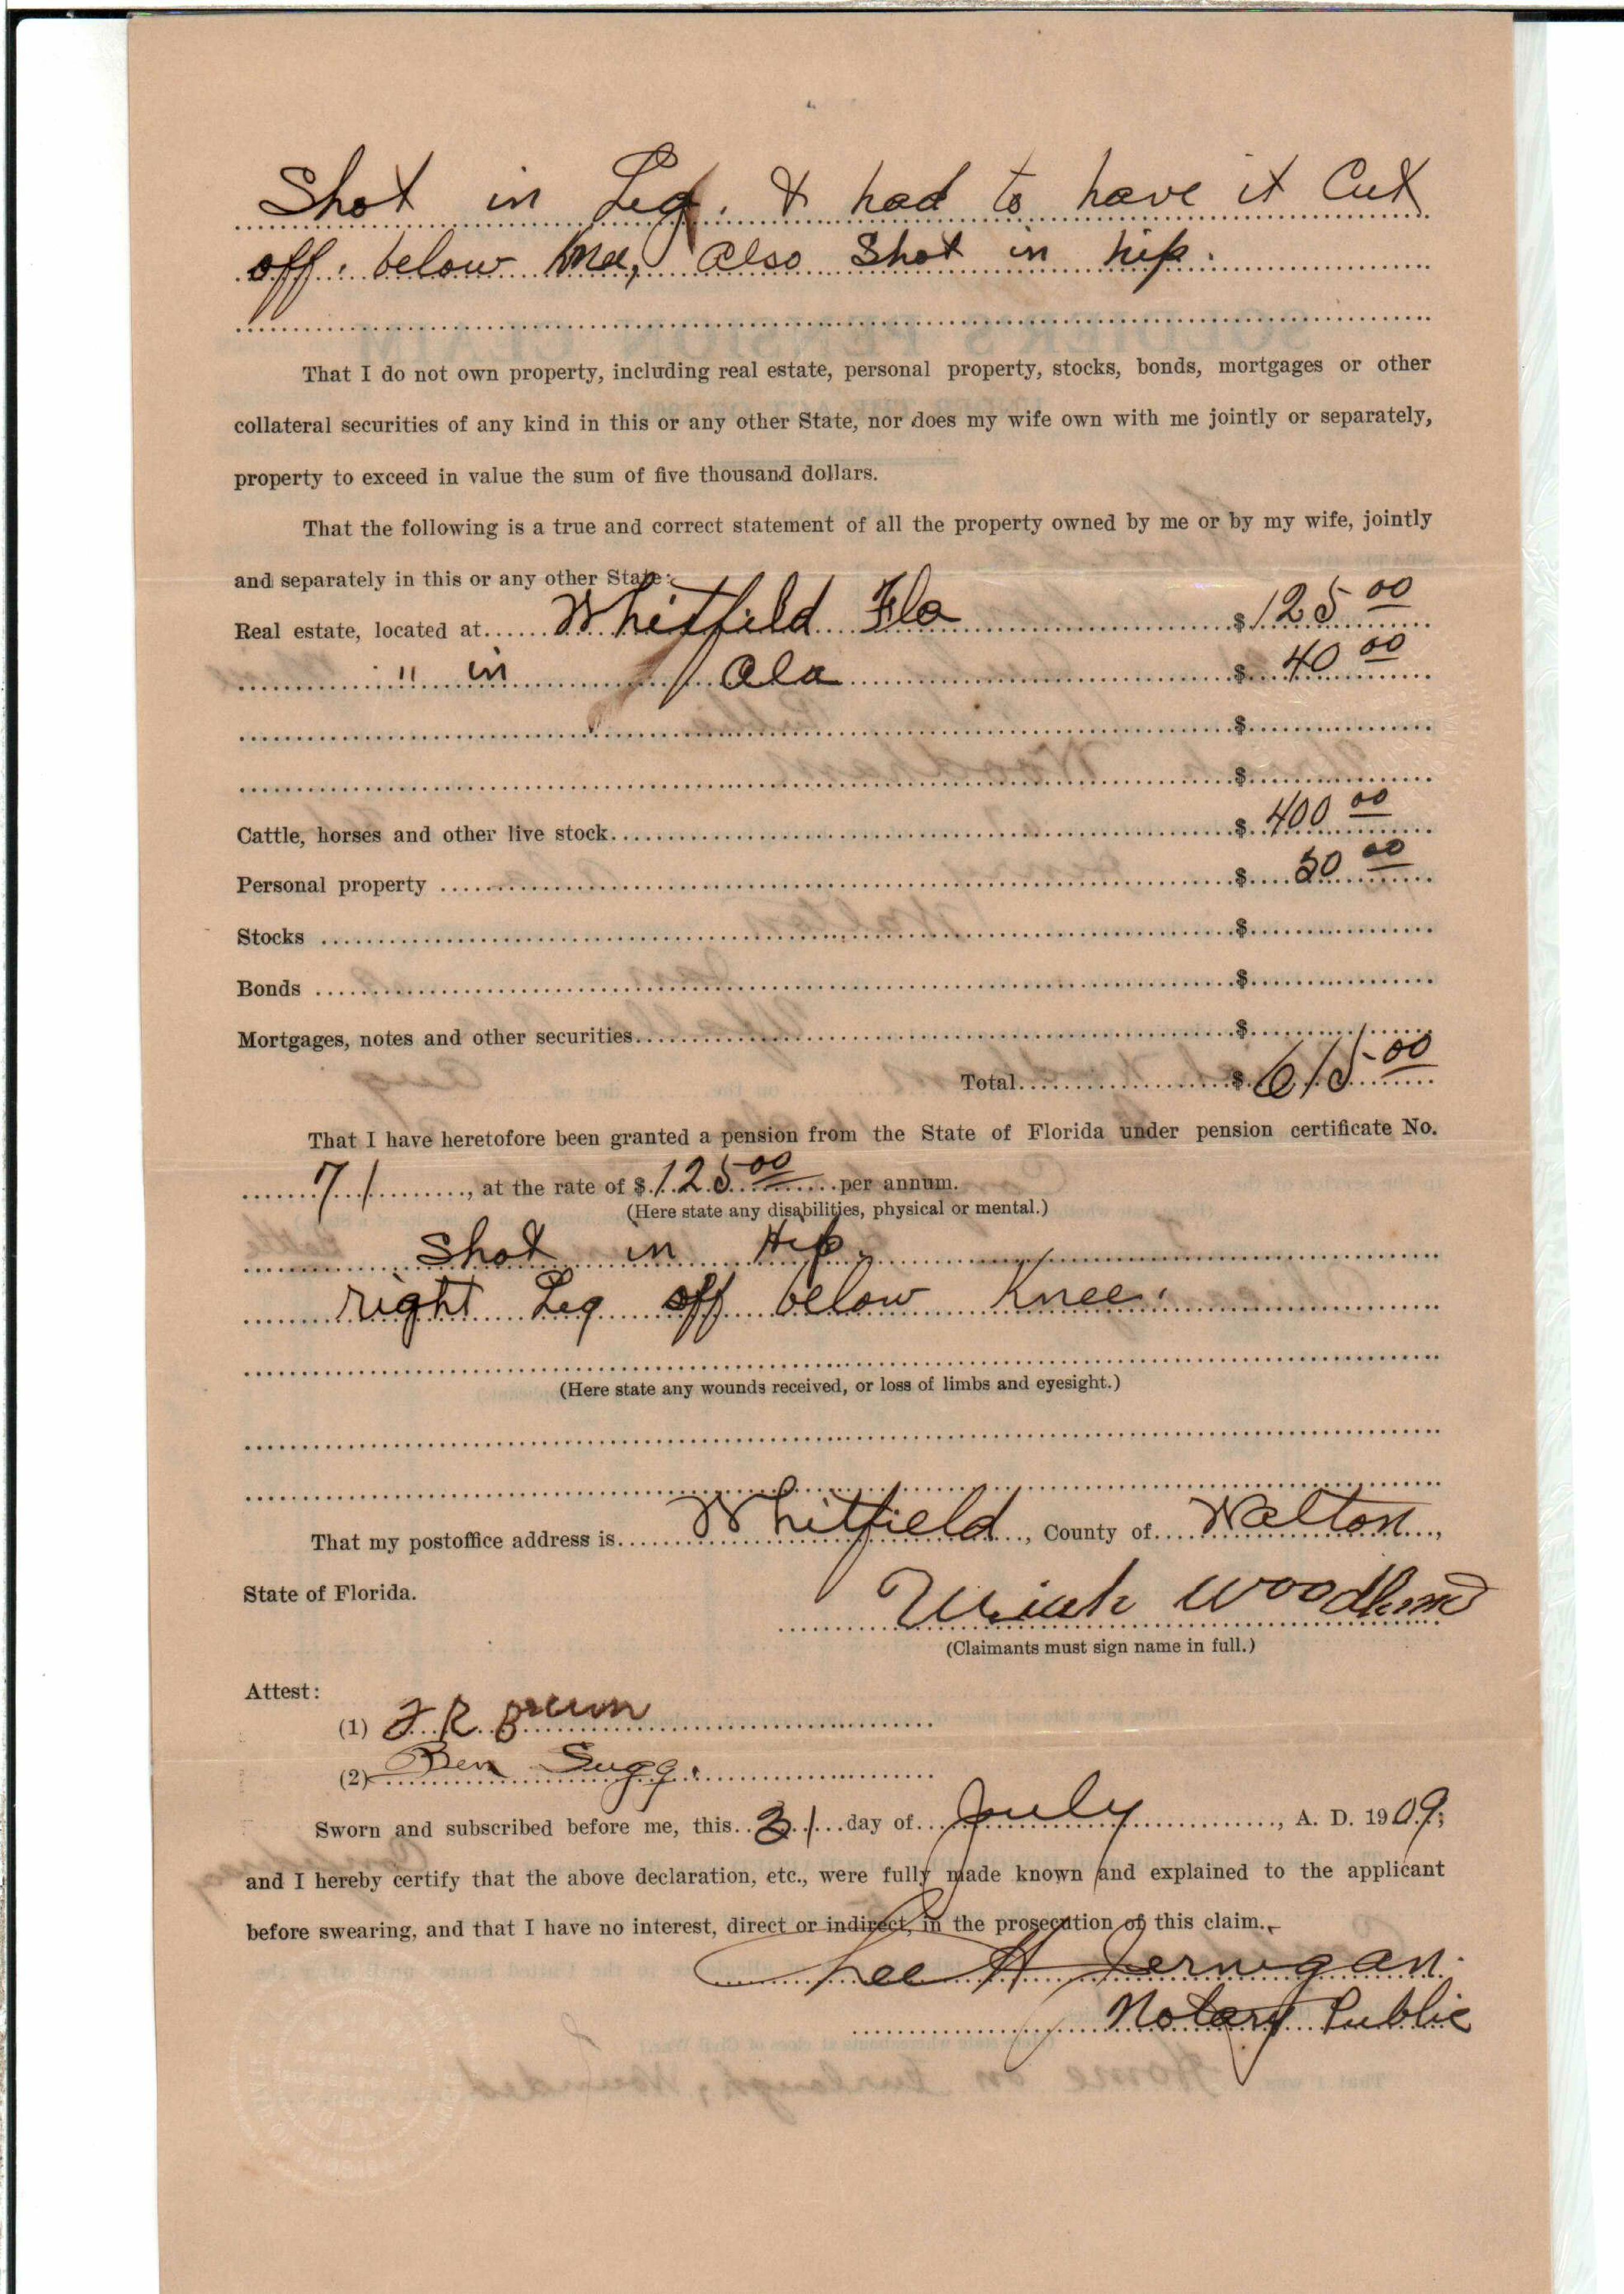 Shot in Leg. & had to have it Cut
off. below Knee, also Shot in hip.
That I do not own property, including real estate, personal property, stocks, bonds, mortgages or other
collateral securities of any kind in this or any other State, nor does my wife own with me jointly or separately,
property to exceed in value the sum of five thousand dollars.
That the following is a true and correct statement of all the property owned by me or by my wife, jointly
and separately in this or any other State:
Real estate, located at Whitfield Fla $125.00
" in Ala $ 40 00
$
$
Cattle, horses and other live stock $ 400 00
Personal property $ 50 00
Stocks $
Bonds $
Mortgages, notes and other securities $
Total $ 615.00
That I have heretofore been granted a pension from the State of Florida under pension certificate No.
71, at the rate of $125.00 per annum.
(Here state any disabilities, physical or mental.)
Shot in Hip.
right Leg off below Knee.
(Here state any wounds received, or loss of limbs and eyesight.)
That my postoffice address is Whitfield, County of Walton,
State of Florida.
Uriah Woodham
(Claimants must sign name in full.)
Attest:
(1) R Brown
(2) Ben Sugg.
Sworn and subscribed before me, this 31 day of July, A. D. 1909;
and I hereby certify that the above declaration, etc., were fully made known and explained to the applicant
before swearing, and that I have no interest, direct or indirect, in the prosecution of this claim.
Lee A Jernigan.
Notary Public